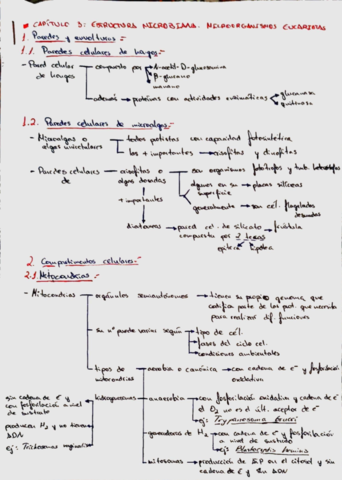 CAPÍTULO 3: ESTRUCTURA MICROBIANA. MICROORGANISMOS EUCARIOTAS
1. Paredes y envolturas:-
1.1. Paredes celulares de hongos:-
- Pared celular de hongos
compuesta por
N-acetil-D-glucosamina
β-glucano
manano
además
proteínas con actividades enzimáticas
glucanasa
quitinasa
1.2. Paredes celulares de microalgas:-
- Microalgas o algas unicelulares
todos protistas con capacidad fotosintética
las + importantes
crisofitas y dinofitas
- Paredes celulares de
crisofitas o algas doradas
son organismos fotótrofos y tmb. heterótrofos
algunos en su superficie
placas silíceas
generalmente
son cél. flageladas desnudas
+ importantes
diatomeas
pared cel. de silicato
frústula
compuesta por 2 tecas
epiteca
hipoteca
2. Compartimentos celulares:-
2.1. Mitocondrias:-
- Mitocondrias
orgánulos semiautónomos
tienen su propio genoma que codifica parte de las prot. que necesita para realizar dif. funciones
su nº puede varias según
tipo de cél.
fases del ciclo cel.
condiciones ambientales
tipos de mitocondrias
aerobia o canónica
con cadena de e⁻ y fosforilación oxidativa
anaerobia
con fosforilación oxidativa y cadena de e⁻
el O₂ no es el últ. aceptor de e⁻
ej:
generadoras de H₂
con cadena de e⁻ y fosforilación a nivel de sustrato
ej:
hidrogenosomas
sin cadena de e⁻ y con fosforilación a nivel de sustrato
producen H₂ y no tienen ADN
ej: Trichomonas vaginalis
mitosomas
producción de en el citosol y sin cadena de e⁻ y sin ADN